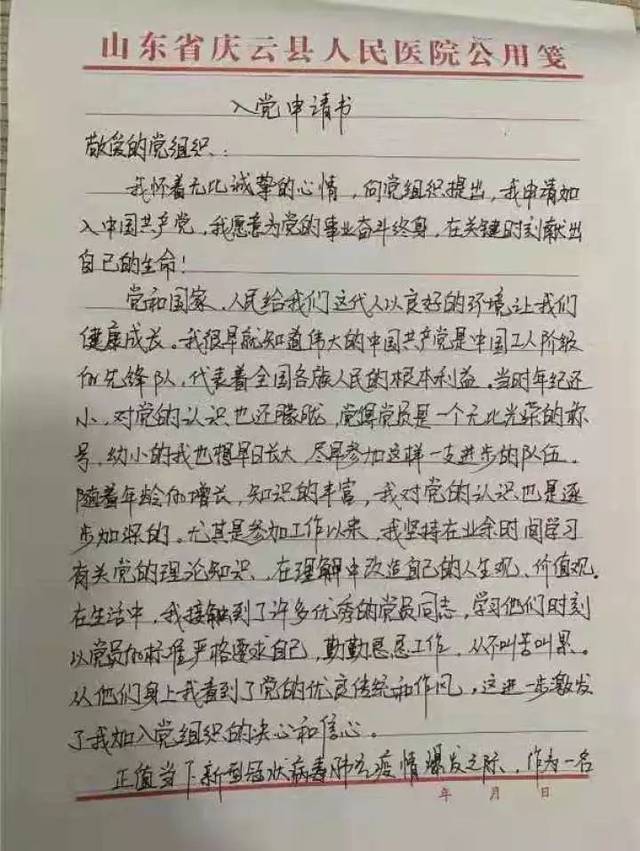 山东省庆云县人民医院公用笺
入党申请书
敬爱的党组织：
我怀着无比诚挚的心情，向党组织提出，我申请加
入中国共产党，我愿意为党的事业奋斗终身，在关键时刻献出
自己的生命！
党和国家、人民给我们这代人以良好的环境让我们
健康成长。我很早就知道伟大的中国共产党是中国工人阶级
的先锋队，代表着全国各族人民的根本利益。当时年纪还
小，对党的认识也还朦胧，觉得党员是一个无比光荣的称
号，幼小的我也想早日长大，尽早参加这样一支进步的队伍。
随着年龄的增长，知识的丰富，我对党的认识也是逐
步加深的。尤其是参加工作以来，我坚持在业余时间学习
有关党的理论知识，在理解中改造自己的人生观、价值观。
在生活中，我接触到了许多优秀的党员同志，学习他们时刻
以党员的标准严格要求自己，勤勤恳恳工作，从不叫苦叫累。
从他们身上我看到了党的优良传统和作风，这进一步激发
了我加入党组织的决心和信心。
正值当下新型冠状病毒肺炎疫情爆发之际，作为一名
年 月 日